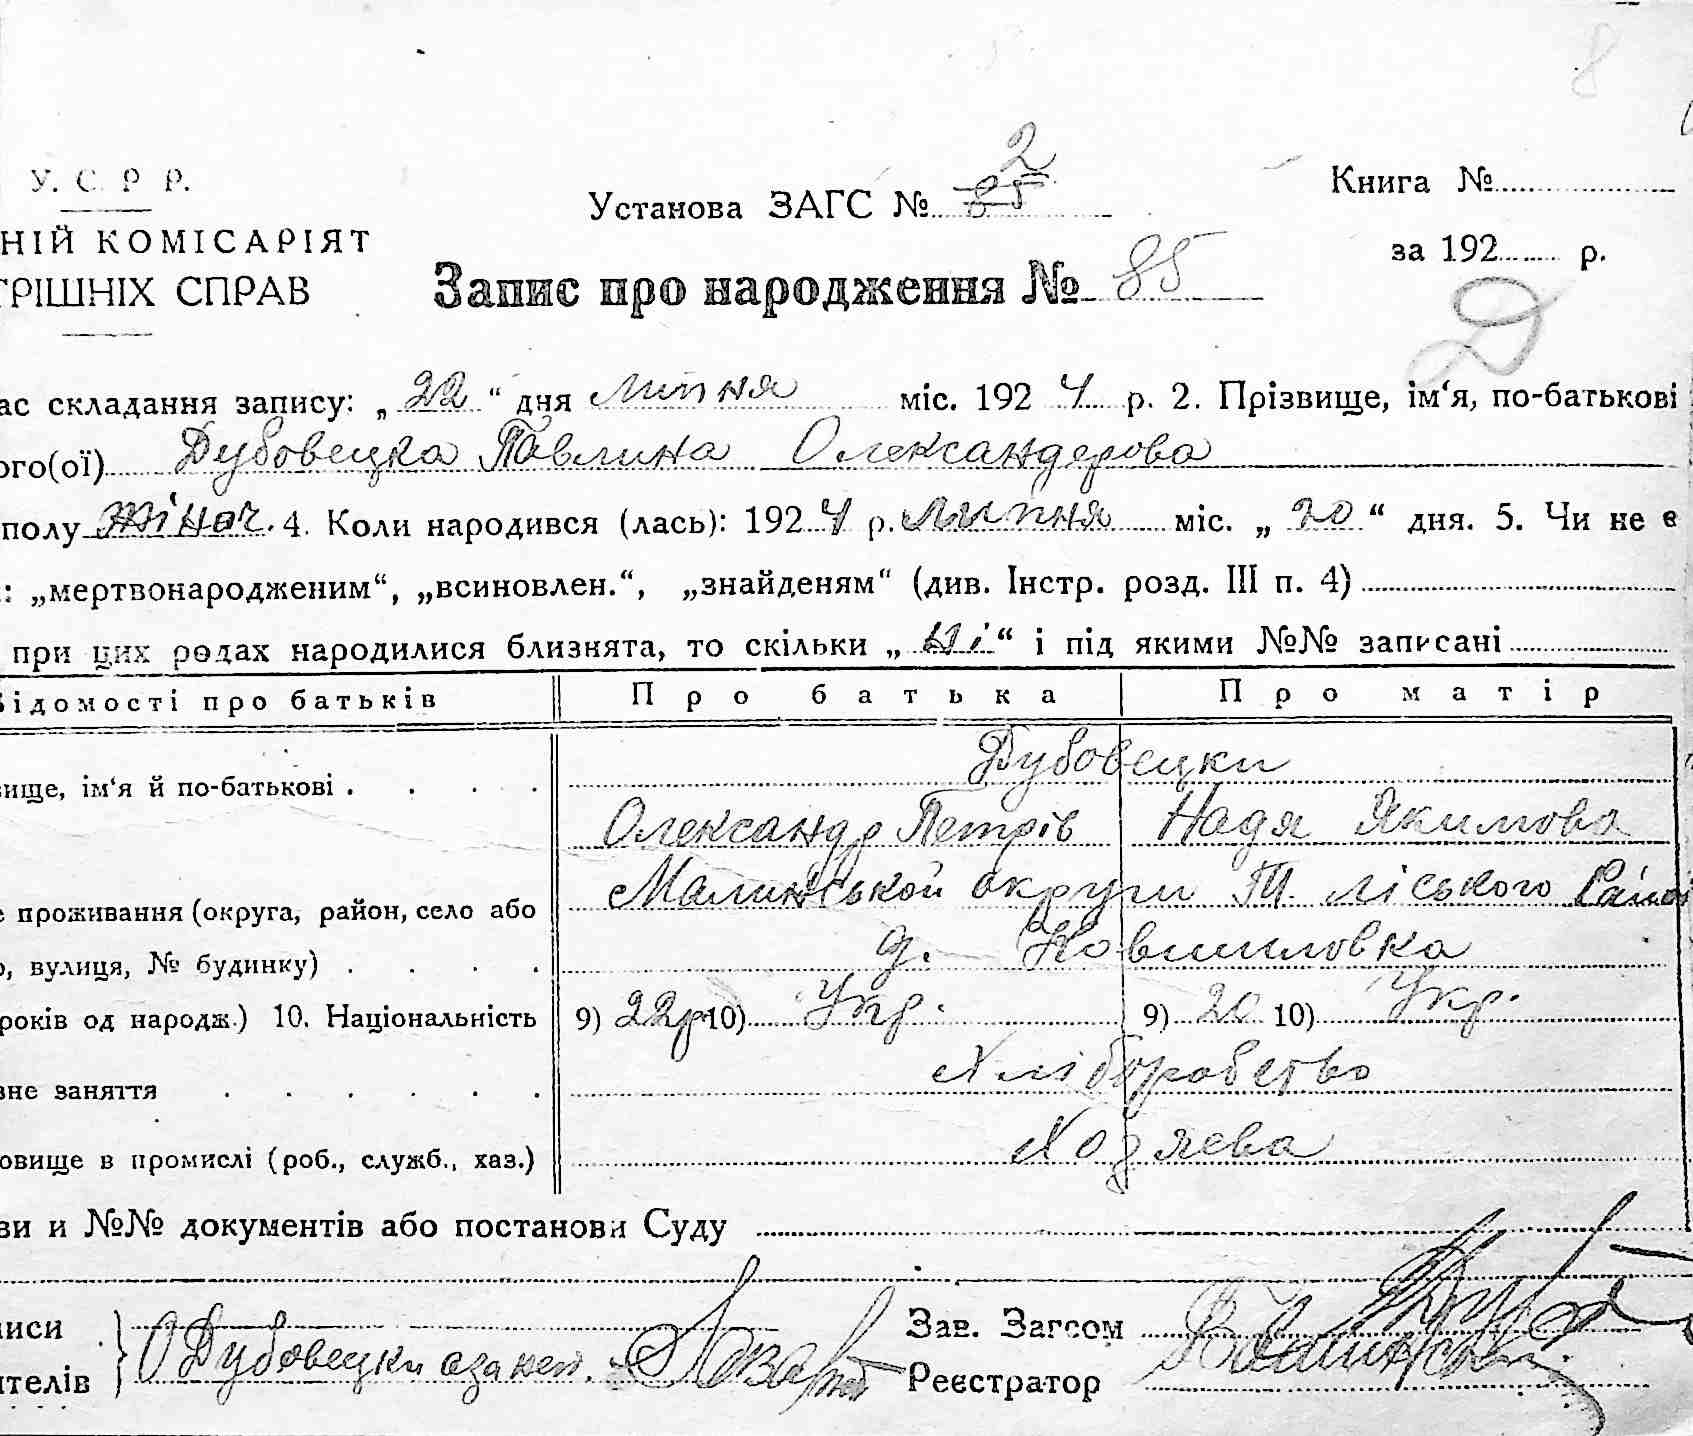 8
У. С. Р. Р.
Установа ЗАГС № 85 2
Книга №
НІЙ КОМІСАРІЯТ
за 192 р.
ТРІШНІХ СПРАВ
Запис про народження № 85
Д
ас складання запису: „22“ дня липня міс. 1924 р. 2. Прізвище, ім‘я, по-батькові
ого(ої) Дубовецка Павлина Олександерова
полу жіноч. 4. Коли народився (лась): 1924 р. липня міс. „20“ дня. 5. Чи не є
: „мертвонародженим“, „всиновлен.“, „знайденям“ (див. Інстр. розд. III п. 4)
при цих родах народилися близнята, то скільки „ні“ і під якими №№ записані
ідомості про батьків Про батька Про матір
Дубовецки
ище, ім‘я й по-батькові
Олександр Петрів Надя Якимова
Малинської округи
ліського Район
е проживання (округа, район, село або
д.
о, вулиця, № будинку)
років од народж.) 10. Національність 9) 22р 10) Укр. 9) 20 10) Укр.
вне заняття Хліборобство
овище в промислі (роб., служб., хаз.) Хозяева
ви и №№ документів або постанови Суду
иси
Зав. Загсом
О Дубовецки
ителів
Реєстратор